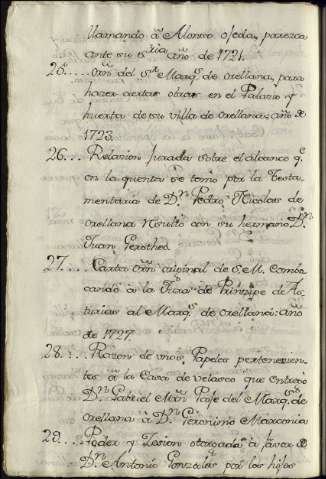 llamando à Alonso ojeda, parezca
ante su s.ria año de 1721.
25.... Orñ del S.r Marq.s de orellana, para
hazer ciertas obras en el Palazio y
huerta de su villa de orellana: año de
1723.
26... Relazion jurada sobre el alcance q.e
en la quenta se tomó por la Testa-
mentaria de D.n Pedro Nicolas de
orellana resultó con su hermano D.n
Juan
27... Carta orñ original de S. M. comu-
cando à la de Principe de As-
turias al Marq.s de orellana: año
de 1727.
28... Razon de unos Papeles pertenezien-
tes à la Casa de velasco que entregó
D.n Gabriel Paje del Marq.s de
orellana à D.n Geronimo
29... Poder y Zesion otorgada à favor de
D.n Antonio Gonzales por los hijos